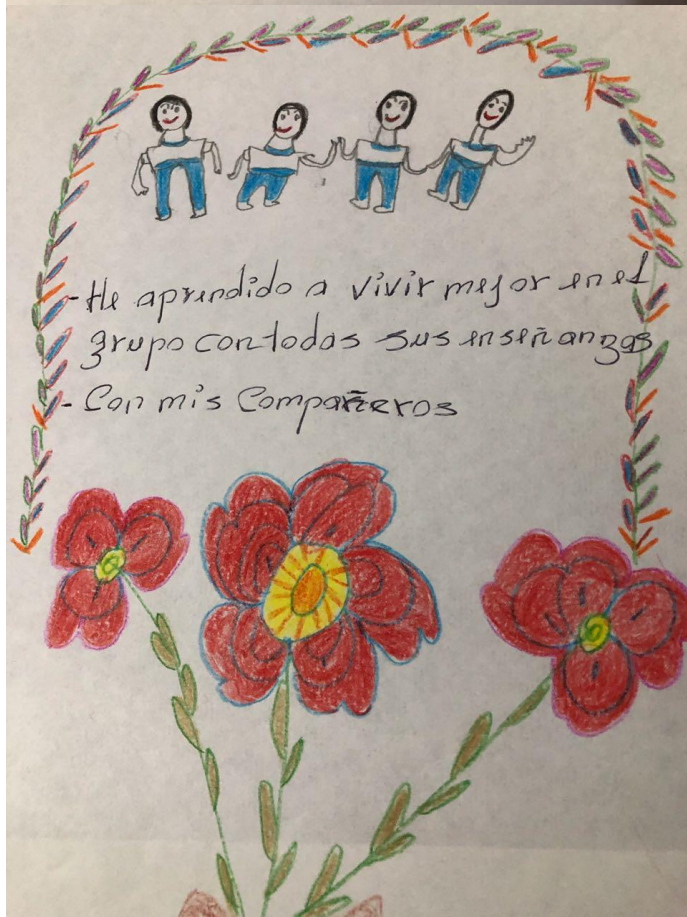 - He aprendido a vivir mejor en el
grupo con todas sus enseñanzas
- Con mis Compañeros